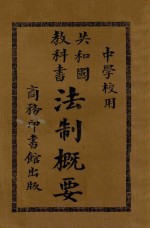 中學校用
共和國
教科書
法制概要
商務印書館出版